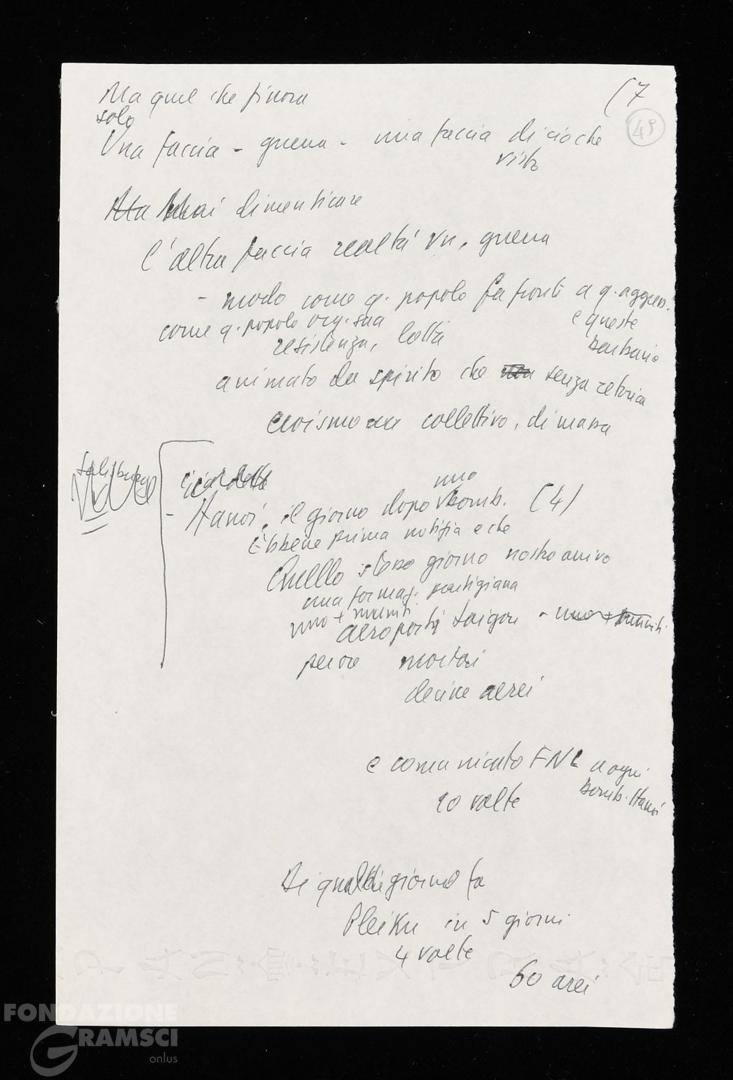 Ma quel che finora (7
solo 49
Una faccia - guerra - una faccia di ciò che
visto
Ma Mai dimenticare
L'altra faccia realtà Vn, guerra
- modo come q. popolo fa fronte a q. aggres.
come q. popolo org. sua e queste
resistenza, lotta barbarie
animato da spirito che senza retorica
eroismo collettivo, di massa
- Hanoi, il giorno dopo uno bomb. (4)
Ebbene prima notizia è che
Quello stesso giorno nostro arrivo
una formaz. partigiana
uno + muniti
aeroporti Saigon - uno + muniti.
mortai
decine aerei
e comunicato FNL a ogni
10 volte bomb. Hanoi
Di qualche giorno fa
Pleiku in 5 giorni
4 volte
60 aerei
FONDAZIONE
GRAMSCI
onlus